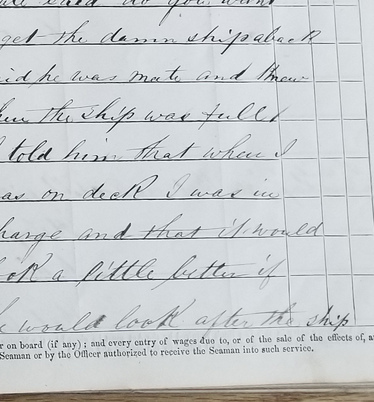 said do you want
get the damn ship aback
id he was mate and knew
hen the ship was full
told him that when I
as on deck I was in
harge and that it would
ok a little better if
e would look after the ship
r on board (if any); and every entry of wages due to, or of the sale of the effects of, a
Seaman or by the Officer authorized to receive the Seaman into such service.